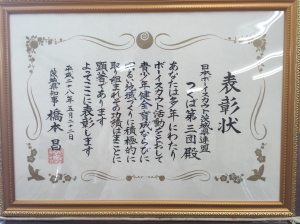 表彰状
日本ボーイスカウト茨城県連盟
つくば第三団殿
あなたは多年にわたり
ボーイスカウト活動をとおして
青少年健全育成ならびに
つよい地域づくりに積極的に
取り組まれその功績はまことに
顕著であります
よってここに表彰します
平成二十八年五月二十二日
茨城県知事 橋本 昌